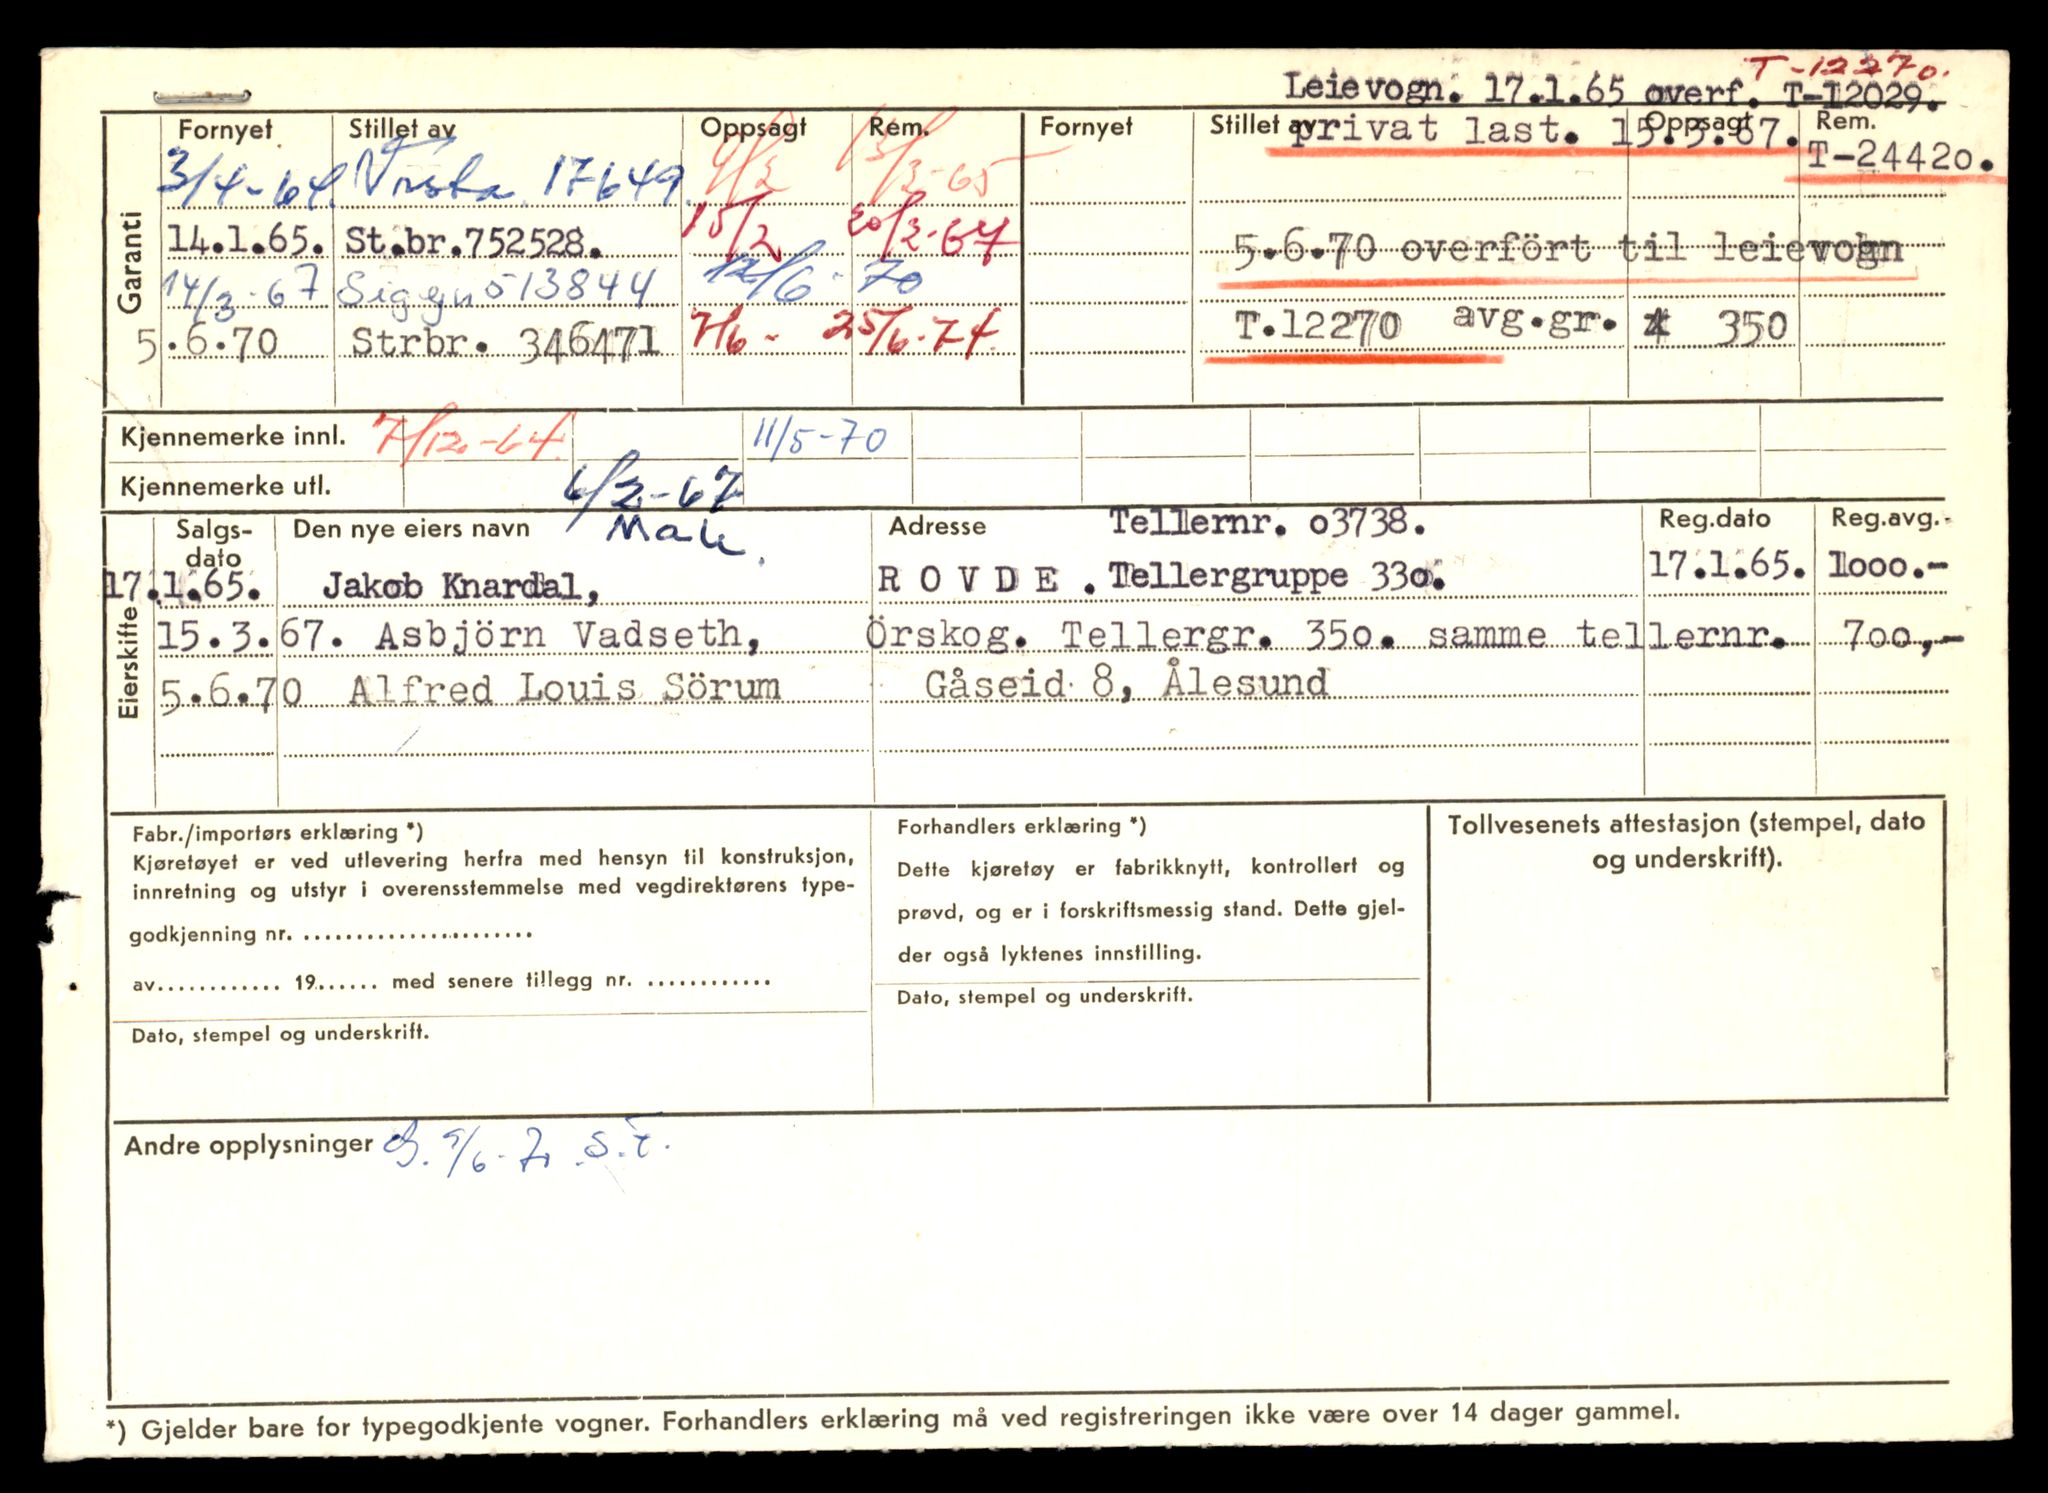 T-12270.
Leievogn. 17.1.65 overf. T-12029.
Fornyet Stillet av Oppsagt Rem. Fornyet Stillet av Oppsagt Rem.
privat last. 15.3.67. T-24420.
Garanti
3/4-64. Vesta 17649. 9/2 13/2-65
14.1.65. St.br.752528. 15/2 20/2-67
5.6.70 overfört til leievogn
14/3-67 Sigyn 513844 12/6-70
5.6.70 Strbr. 346471 7/6- 25/6-74.
T.12270 avg.gr. 350
Kjennemerke innl. 7/12-64. 11/5-70
Kjennemerke utl. 6/2-67
Eierskifte
Salgs-dato Den nye eiers navn Adresse Tellernr. 03738. Reg.dato Reg.avg.
17.1.65. Jakob Knardal, ROVDE. Tellergruppe 330. 17.1.65. 1000.-
15.3.67. Asbjörn Vadseth, Örskog. Tellergr. 350. samme tellernr. 700,-
5.6.70 Alfred Louis Sörum Gåseid 8, Ålesund
Fabr./importørs erklæring *)
Kjøretøyet er ved utlevering herfra med hensyn til konstruksjon,
innretning og utstyr i overensstemmelse med vegdirektørens type-
godkjenning nr. .......................
av............ 19...... med senere tillegg nr. ............
Dato, stempel og underskrift.
Forhandlers erklæring *)
Dette kjøretøy er fabrikknytt, kontrollert og
prøvd, og er i forskriftsmessig stand. Dette gjel-
der også lyktenes innstilling.
Dato, stempel og underskrift.
Tollvesenets attestasjon (stempel, dato
og underskrift).
Andre opplysninger
*) Gjelder bare for typegodkjente vogner. Forhandlers erklæring må ved registreringen ikke være over 14 dager gammel.